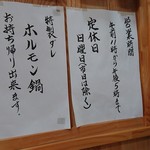 営業時間
午前11時から午後5時まで
定休日
日曜日(市日は除く)
特製ダレ
ホルモン鍋
お持ち帰り出来ます。